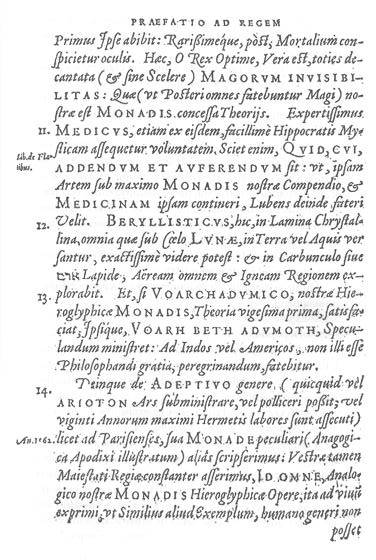 PRAEFATIO AD REGEM
Primus Ipse abibit: Rarißimeque, pòst, Mortalium con-
spicietur oculis. Hæc, O Rex Optime, Vera est, toties de-
cantata (& sine Scelere) MAGORVM INVISIBI-
LITAS: Quæ (vt Posteri omnes fatebuntur Magi) no-
stræ est MONADIS concessa Theorijs. Expertissimus
11. MEDICVS, etiam ex eisdem, facillimè Hippocratis My-
sticam assequetur voluntatem. Sciet enim, QVID, CVI,
Lib. de Fla
tibus.
ADDENDVM ET AVFERENDVM sit: vt, ipsam
Artem sub maximo MONADIS nostræ Compendio, &
MEDICINAM ipsam contineri, Lubens deinde fateri
12. Velit. BERYLLISTICVS, hic, in Lamina Chrystal-
lina, omnia quæ sub Cœlo LVNÆ, in Terra vel Aquis ver
santur, exactißimè videre potest: & in Carbunculo siue
Lapide, Aëream omnem & Igneam Regionem ex-
13. plorabit. Et, si VOARCHADVMICO, nostræ Hie-
roglyphicæ MONADIS, Theoria vigesima prima, satisfa-
ciat, Ipsique, VOARH BETH ADVMOTH, Specu-
landum ministret: Ad Indos vel Americos, non illi esse
Philosophandi gratia, peregrinandum, fatebitur.
14. Deinque de ADEPTIVO genere (quicquid vel
ARIOTON Ars subministrare, vel polliceri poßit; vel
viginti Annorum maximi Hermetis labores sunt assecuti)
An. 1562. licet ad Parisienses, sua MONADE peculiari (Anagogi-
ca Apodixi illustratum) aliàs scripserimus: Vestræ tamen
Maiestati Regiæ constanter asserimus, ID OMNE, Analo-
gico nostræ MONADIS Hieroglyphicæ Opere, ita ad viuũ
exprimi, vt Similius aliud Exemplum, humano generi non
posset